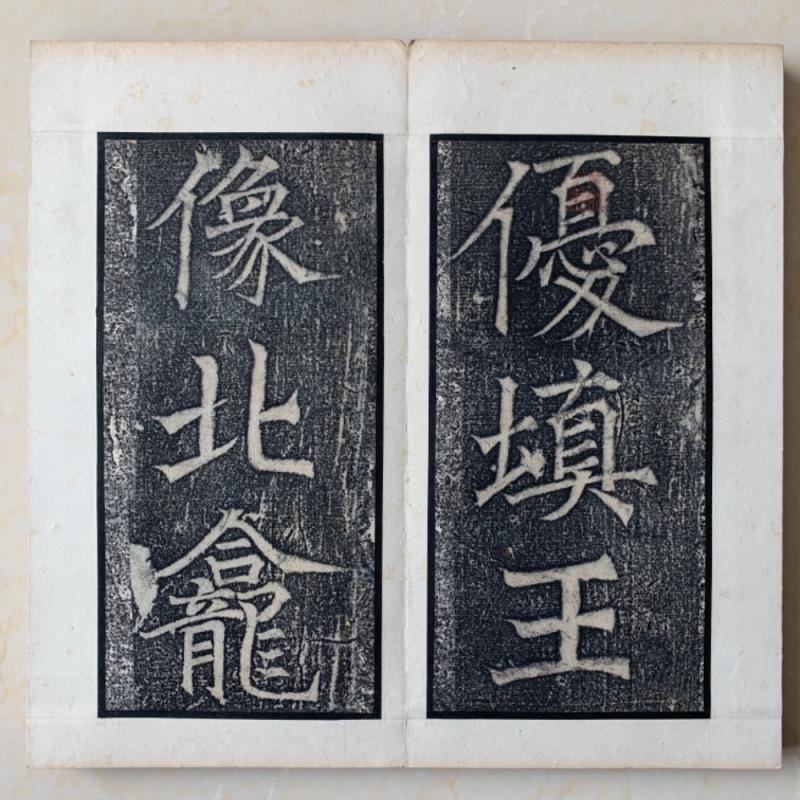 優填王
像北龕